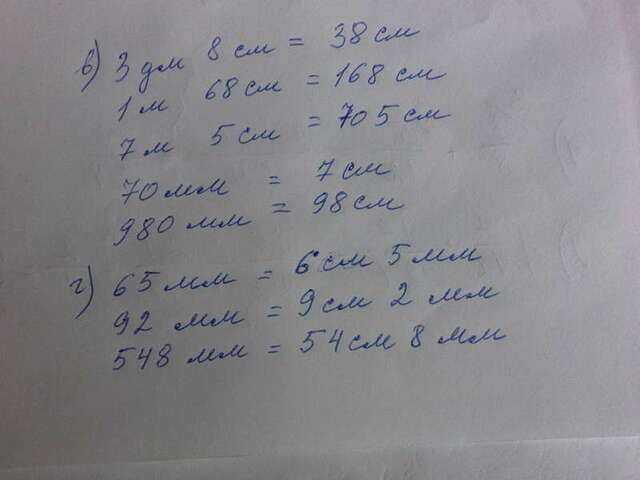 в) 3 дм 8 см = 38 см
1 м 68 см = 168 см
7 м 5 см = 705 см
70 мм = 7 см
980 мм = 98 см
г) 65 мм = 6 см 5 мм
92 мм = 9 см 2 мм
548 мм = 54 см 8 мм